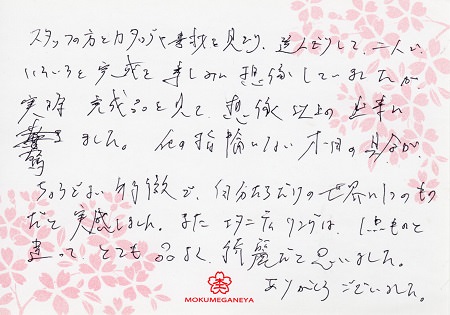 スタッフの方とカタログや書状を見たり、選んだりして、二人で、
いろいろと完成を楽しみに想像していましたが、
実際 完成品を見て、想像以上の出来に
驚きました。他の指輪にない木目の具合が、
ちょうどよい特徴で、自分たちだけの世界に1つのもの
だと実感しました。また エタニティリングは、1点ものと
違って とても 品よく、綺麗だと思いました。
ありがとうございました。
MOKUMEGANEYA